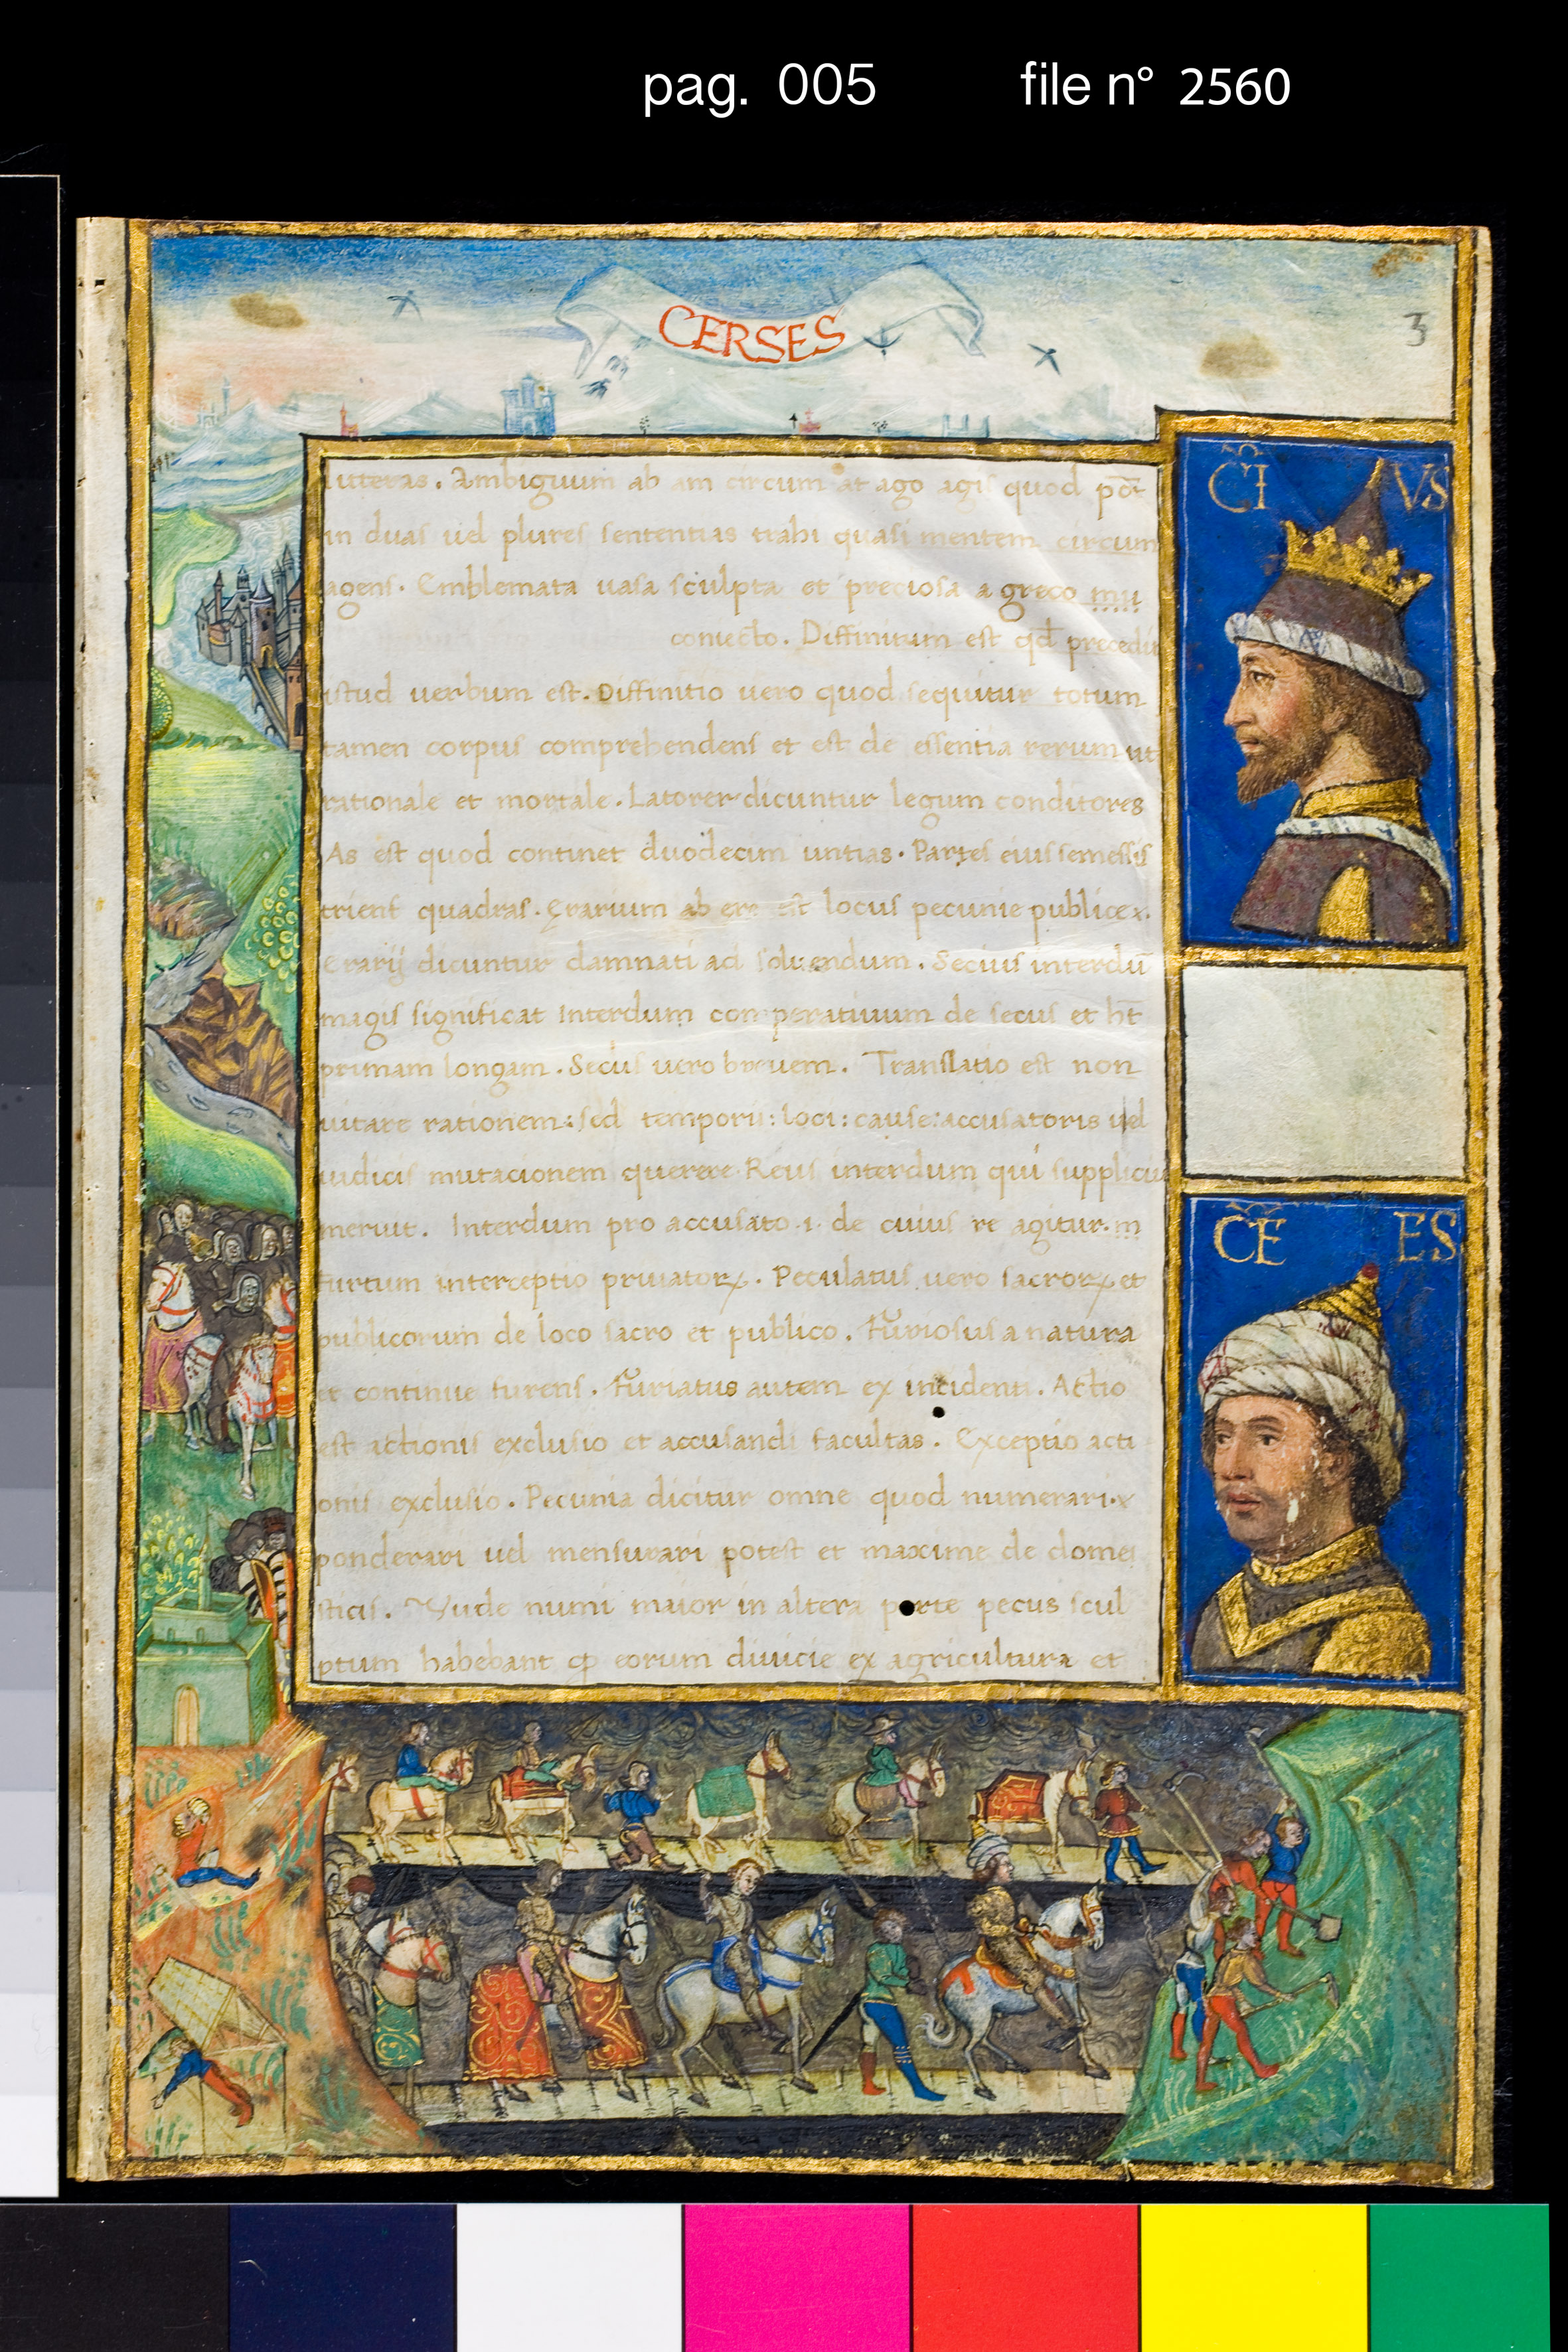 pag. 005 file n° 2560
CERSES
3
litteras. Ambiguum ab am circum et ago agis quod pōt
in duas uel plures sententias trahi quasi mentem circum
agens. Emblemata uasa sculpta et preciosa a greco mu
coniecto. Diffinitum est qd precedit
istud uerbum est. Diffinitio uero quod sequitur totum
tamen corpus comprehendens et est de essentia rerum ut
rationale et mortale. Latorer dicuntur legum conditores
As est quod continet duodecim untias. Partes eius semessis
trient quadras. Erarium ab ere est locus pecunie publice
erarij dicuntur damnati ad soluendum. Secius interdū
magis significat interdum comperatiuum de secus et ht̄
primam longam. Secus uero breuem. Translatio est non
uitare rationem: sed temporis: loci: cause: accusatoris uel
iudicis mutacionem querere. Reus interdum qui suppliciu
meruit. Interdum pro accusato .i. de cuius re agitur. in
furtum interceptio priuatorꝝ. Peculatus uero sacrorꝝ et
publicorum de loco sacro et publico. Furiosus a natura
et continue furens. Furiatus autem ex incidenti. Actio
est actionis exclusio et accusandi facultas. Exceptio acti
onis exclusio. Pecunia dicitur omne quod numerari
ponderari uel mensurari potest et maxime de dome
sticis. Vnde numi maior in altera parte pecus scul
ptum habebant ꝙ eorum diuicie ex agricultura et
CI VS
CE ES